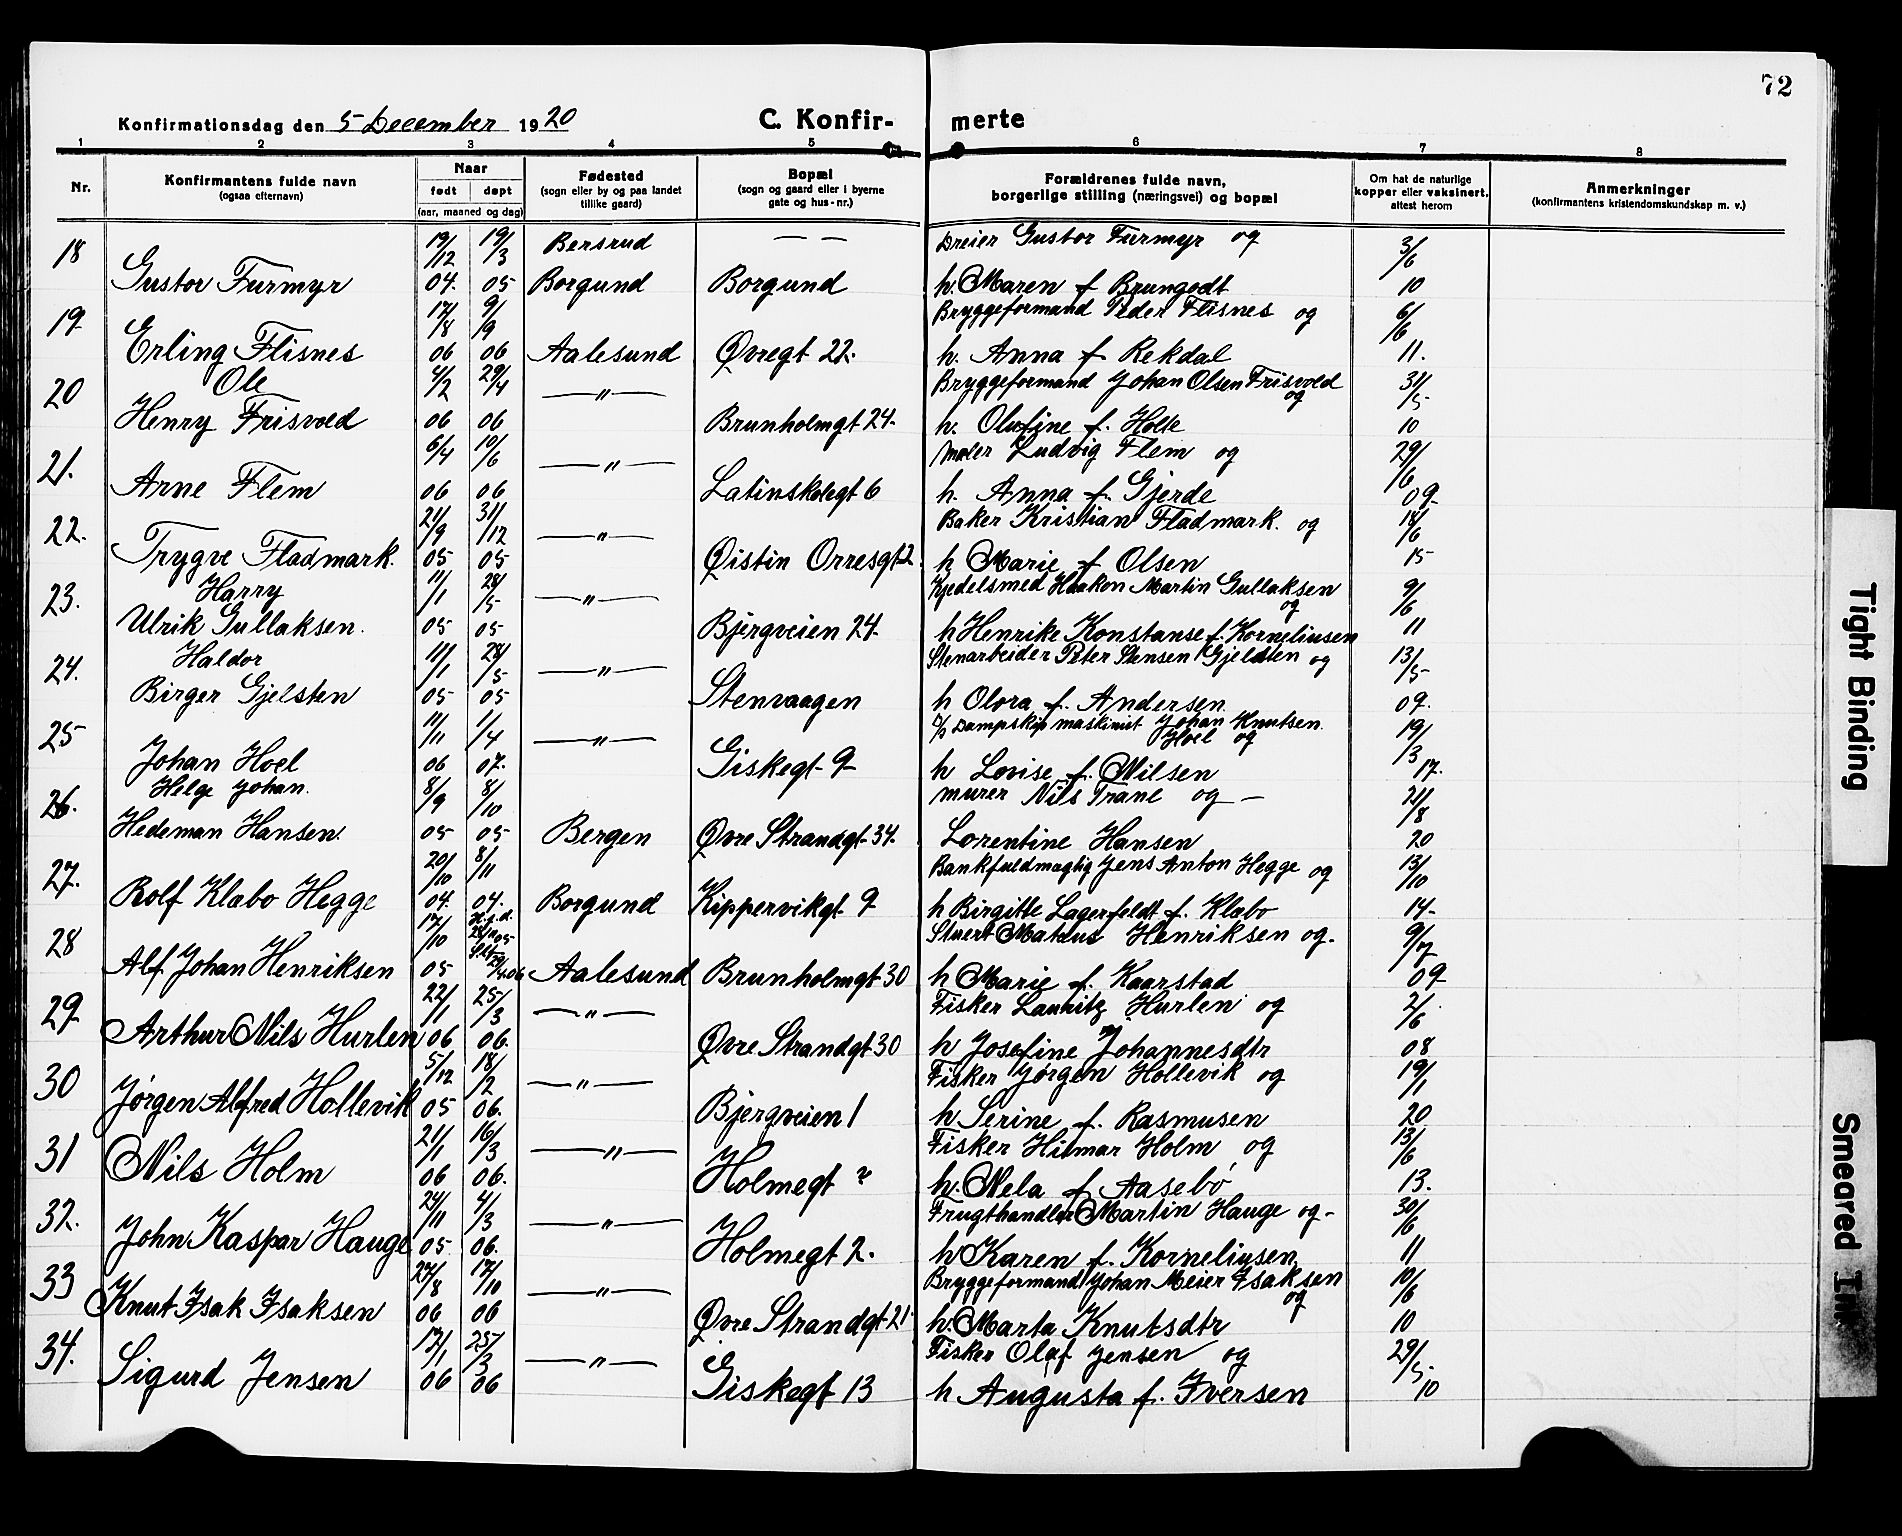 72
Konfirmationsdag den 5 December 1920 C. Konfir- merte
1 2 3 4 5 6 7 8
Nr.
Konfirmantens fulde navn
(ogsaa efternavn)
Naar
født døpt
(aar, maaned og dag)
Fødested
(sogn eller by og paa landet
tillike gaard)
Bopæl
(sogn og gaard eller i byerne
gate og hus-nr.)
Forældrenes fulde navn,
borgerlige stilling (næringsvei) og bopæl
Om hat de naturlige
kopper eller vaksinert,
attest herom
Anmerkninger
(konfirmantens kristendomskundskap m. v.)
18 19/12 19/3 — — Dreier Gustor Furmyr og 3/6
Gustor Furmyr 04. 05 Borgund Borgund h. Maren f Brungodt 10
19. 17/8 9/9 Bryggeformand Peder Flisnes og 6/6
Erling Flisnes 06 06 Aalesund Øvregt 22. h. Anna f. Rekdal 11.
20 Ole 4/2 29/4 —"— Bryggeformand Johan Olsen Frisvold og 31/5
Henry Frisvold 06 06 Brunholmgt 24. h. Olufine f. Holte 10
21. 6/4 10/6 —"— Maler Ludvig Flem og 29/6
Arne Flem 06 06 Latinskolegt 6 h. Anna f. Gjerde 09
22. 21/9 31/12 —"— Baker Kristian Fladmark. og 18/6
Trygve Fladmark. 05 05 Øistin Orresgt 2. h Marie f Olsen 15
23. Harry 11/1 28/5 —"— Kjedelsmed Haakon Martin Gullaksen og 9/6
Ulrik Gullaksen. 05 05 Bjergveien 24. h Henrike Konstanse f. Korneliusen 11
24. Haldor 11/1 28/5 —"— Stenarbeider Peter Stensen Gjeldsten og 13/5
Birger Gjelsten 05 05 Stenvaagen h Olora f. Andersen. 09.
25 11/11 1/4 —"— D/s Dampskip maskinist Johan Knutsen Hoel og 19/3
Johan Hoel 06 07. Giskegt 9 h Lovise f. Nilsen 17.
26. Helge Johan. 8/9 8/10 murer Nils Trane og — 21/8
Hedeman Hansen. 05 05 Bergen Øvre Strandgt 34. Lorentine Hansen 20
27. 20/10 8/11 Bankfuldmægtig Jens Anton Hegge og 13/10
Rolf Klabo Hegge 04. 04. Borgund Kippervikgt 9 h Birgitte Lagerfeldt f. Klabo 14
28 17/10 Stuert Mataus Henriksen og. 9/07
Alf Johan Henriksen 05 Aalesund Brunholmgt 30 h Marie f. Kaarstad 09
29. 22/1 25/3 —"— Fisker Lauritz Hurlen og 2/6
Arthur Nils Hurlen 06 06. Øvre Strandgt 30 h Josefine Johannesdtr 08
30 5/12 18/2 —"— Fisker Jørgen Hollevik og 19/1
Jørgen Alfred Hollevik 05 06. Bjergveien 1 h Serine f. Rasmusen 20
31 21/1 16/3 —"— Fisker Hilmar Holm og 13/6
Nils Holm 06 06. Holmegt h. Nela f. Aasebø 13.
32. 24/11 4/3 —"— Frugthandler Martin Hauge og - 30/6
John Kaspar Hauge 05 06. Holmegt 2. h Karen f. Korneliusen 11
33 27/8 17/10 —"— Bryggeformand Johan Meier Isaksen og 10/6
Knut Isak Isaksen 06 06 Øvre Strandgt 21. h. Marta Knutsdtr 10
34. 17/1 25/3 —"— Fisker Olaf Jensen og 29/5
Sigurd Jensen 06 06 Giskegt 13 h Augusta f. Iversen 10
Tight Binding
Smeared Ink